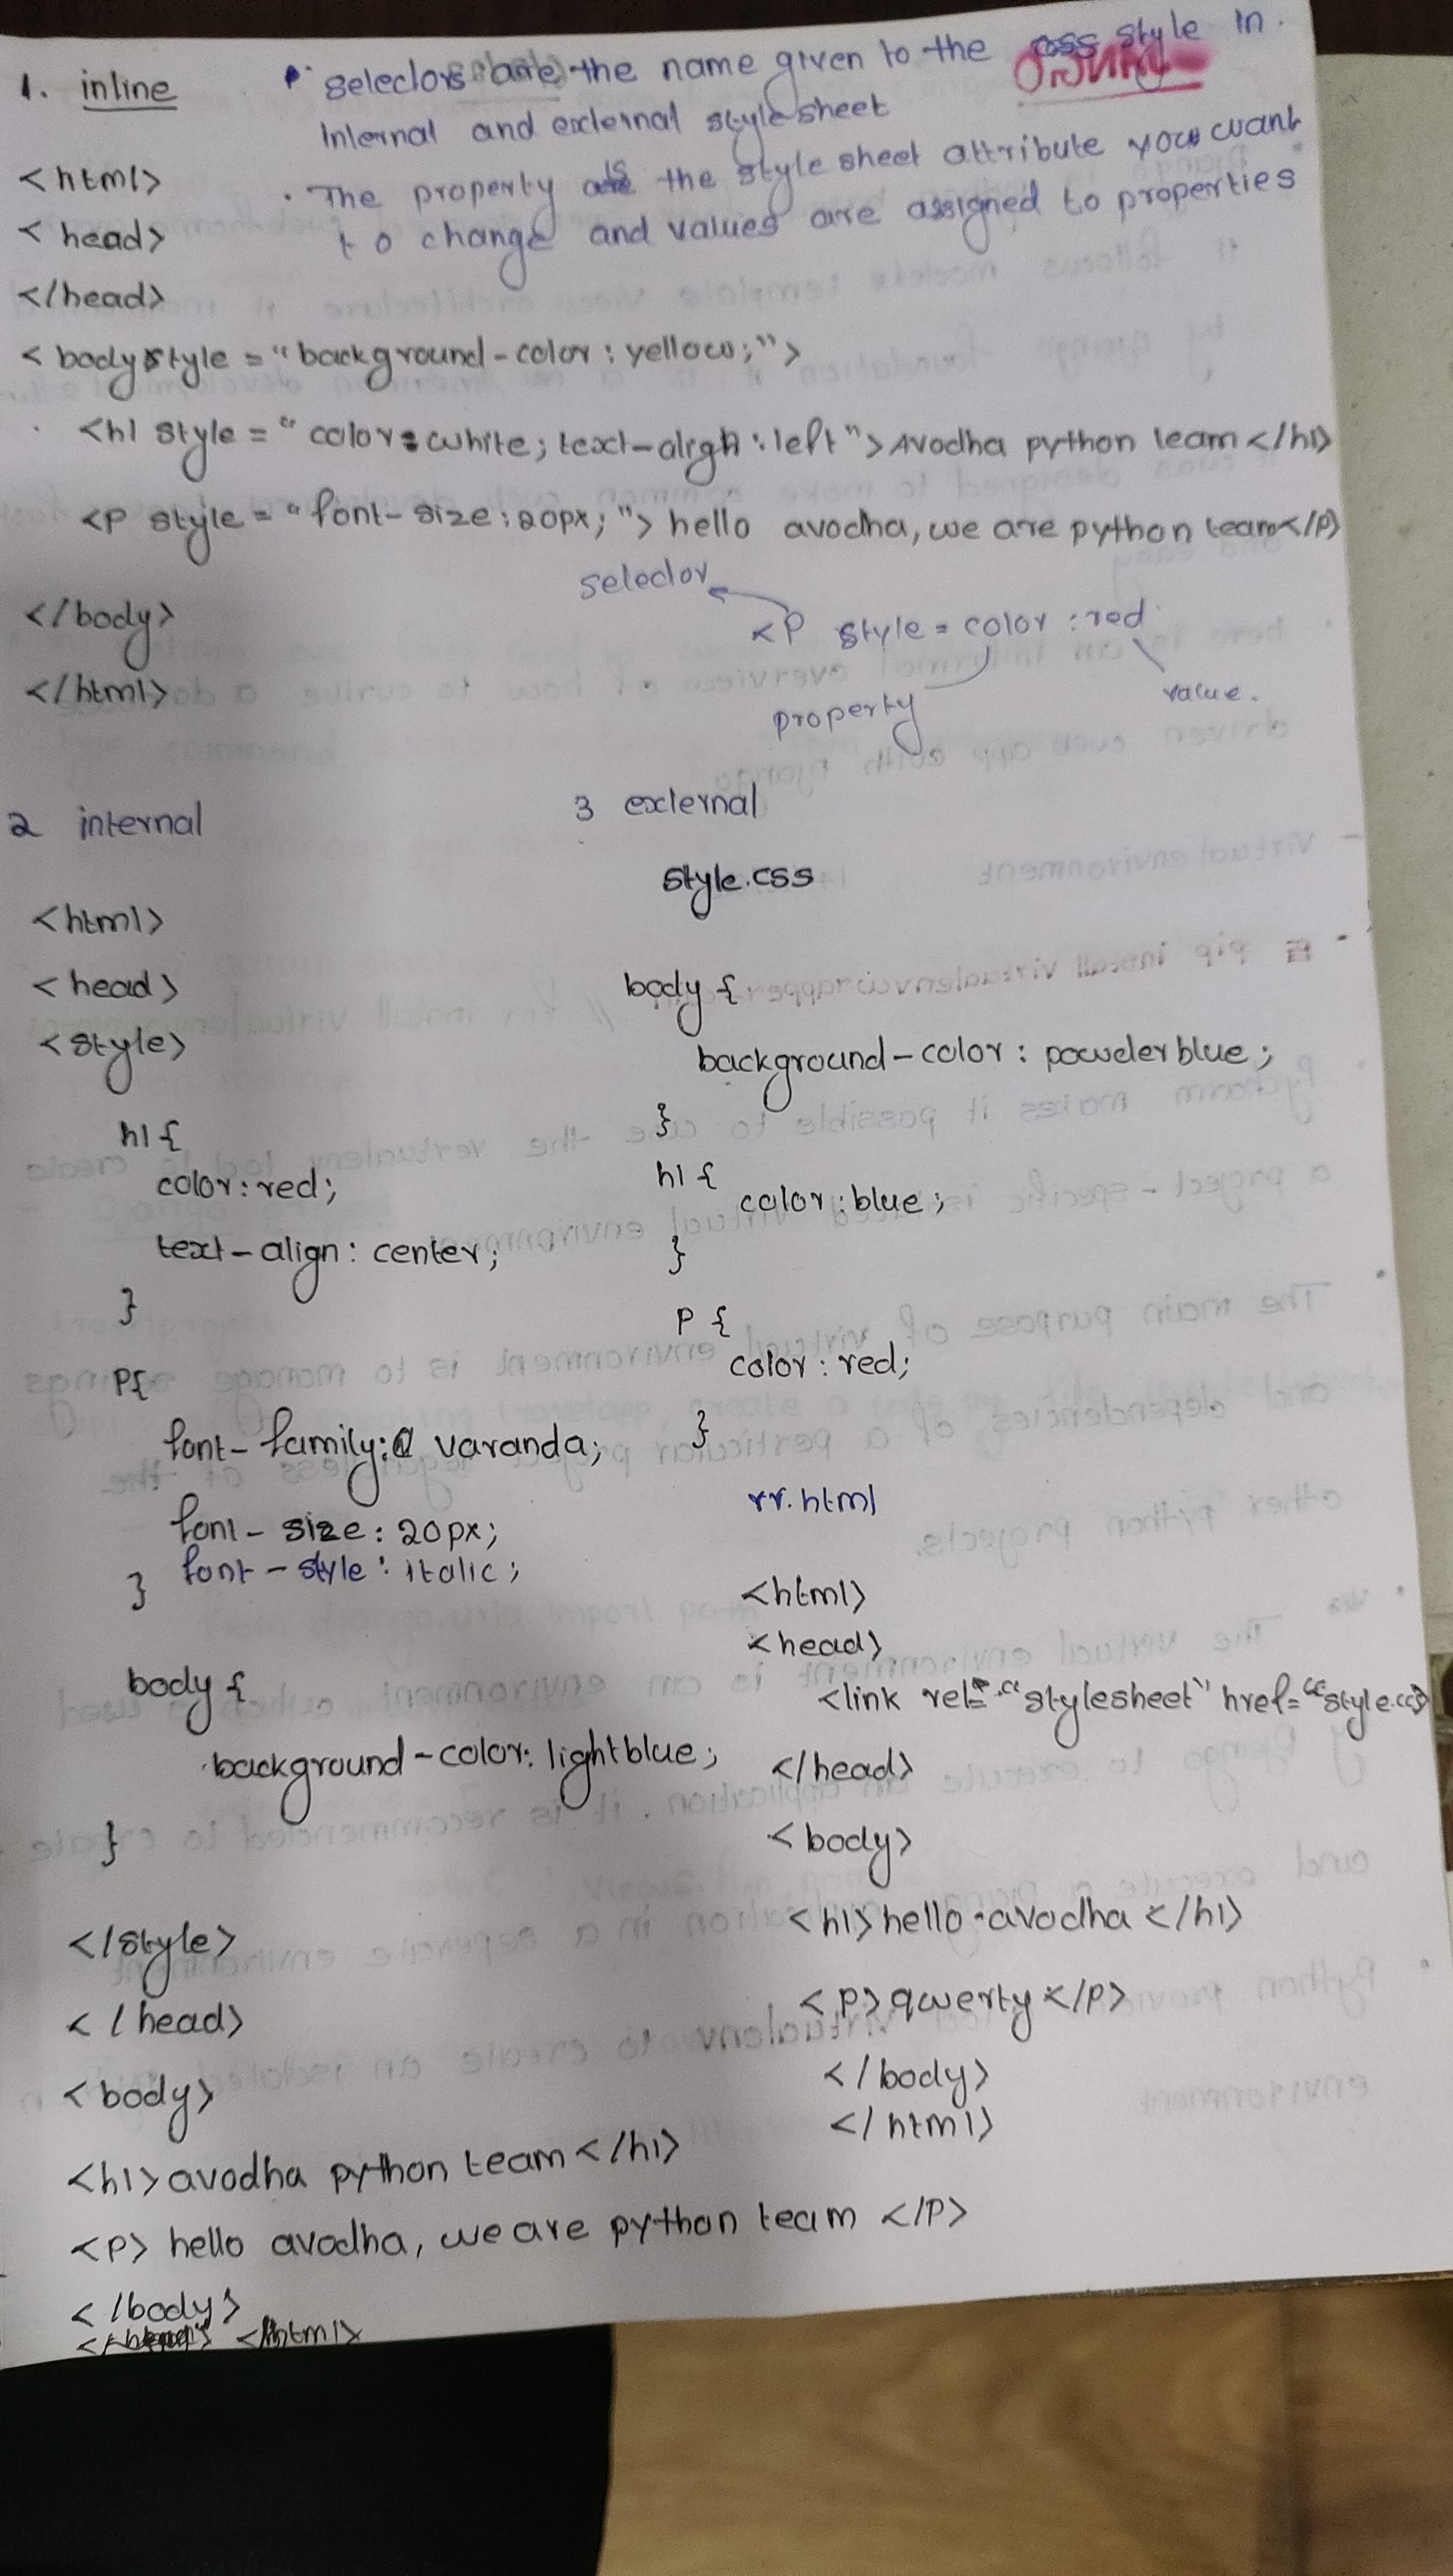 1. inline
• selectors are the name given to the css style in
Internal and external style sheet
• The property is the style sheet attribute you want
to change and values are assigned to properties
<html>
<head>
</head>
<body style = "background-color: yellow;">
<h1 style = "color: white; text-align: left">Avodha python team</h1>
<p style = "font-size: 20px;"> hello avodha, we are python team</p>
</body>
</html>
selector
<p style = color : red
property
value.
2 internal
<html>
<head>
<style>
h1 {
color: red;
text-align: center;
}
P{
font-family: varanda;
font-size: 20px;
font-style: italic;
}
body {
background-color: lightblue;
}
</style>
</head>
<body>
<h1>avodha python team</h1>
<p> hello avodha, we are python team </p>
</body>
</html>
3 external
style.css
body {
background-color: powderblue;
}
h1 {
color: blue;
}
P {
color: red;
}
rr.html
<html>
<head>
<link rel= "stylesheet" href="style.css>
</head>
<body>
<h1>hello avodha</h1>
<p>qwerty</p>
</body>
</html>